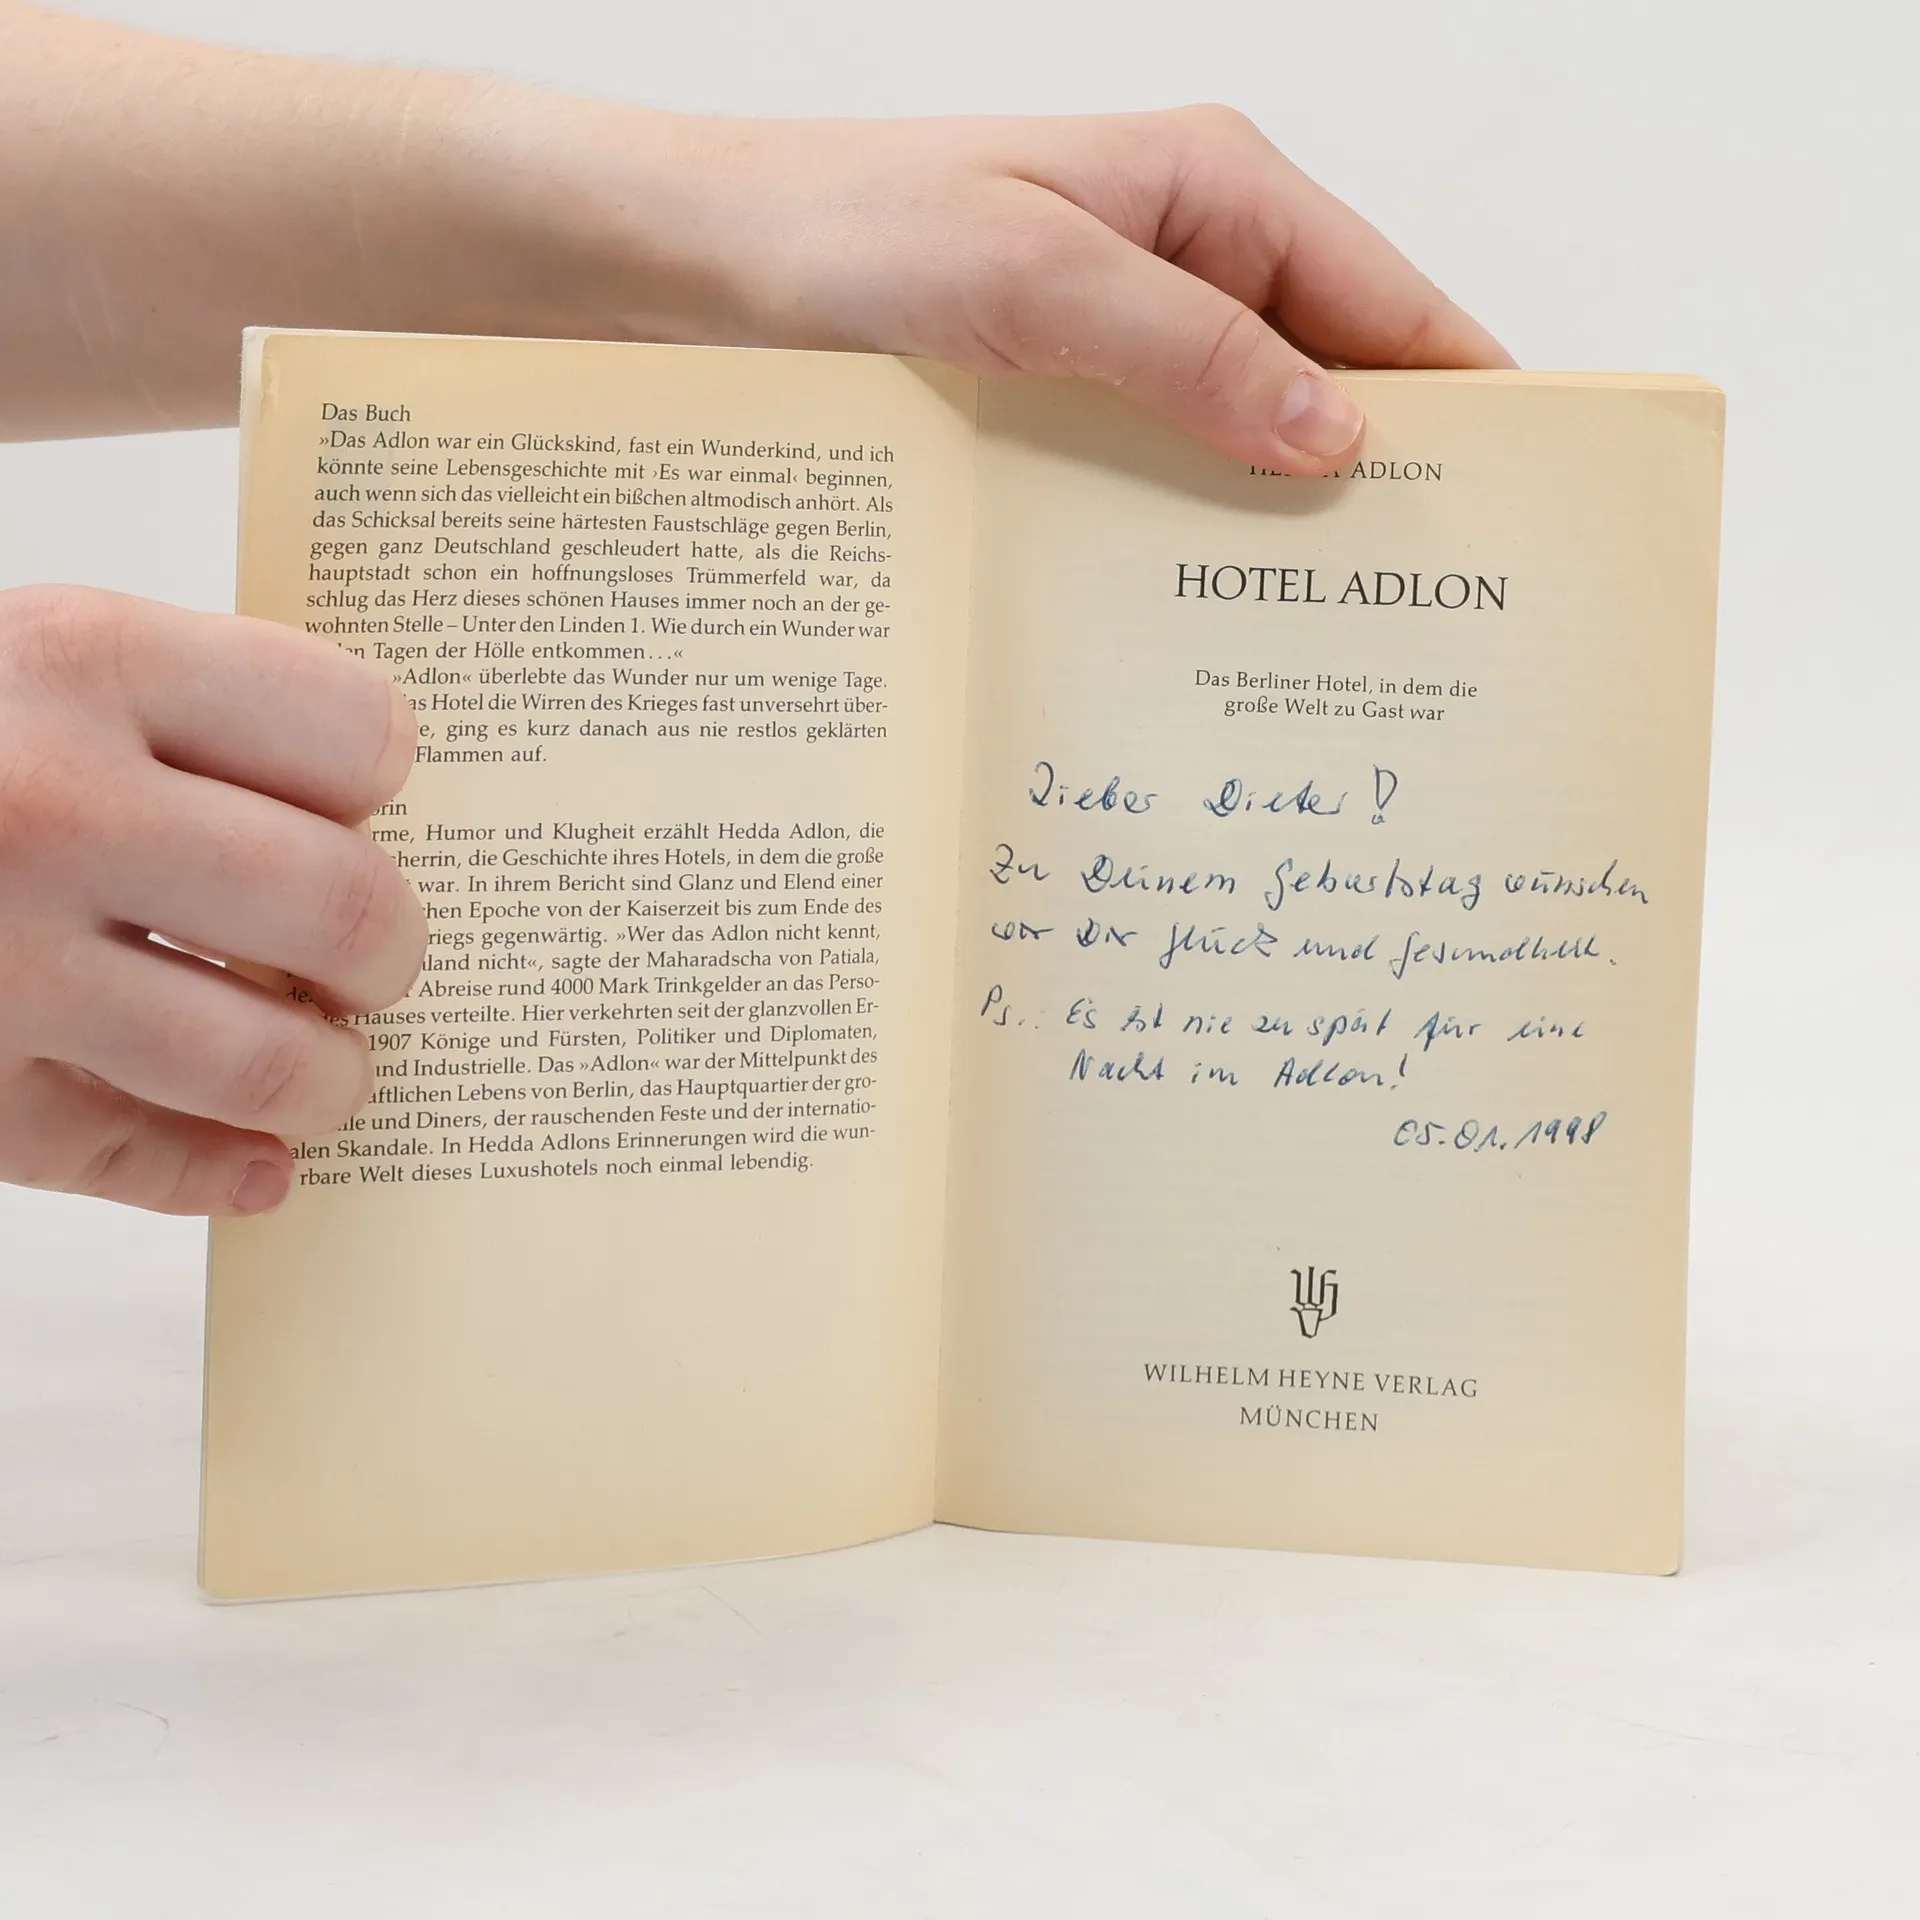 Das Buch
»Das Adlon war ein Glückskind, fast ein Wunderkind, und ich
könnte seine Lebensgeschichte mit ›Es war einmal‹ beginnen,
auch wenn sich das vielleicht ein bißchen altmodisch anhört. Als
das Schicksal bereits seine härtesten Faustschläge gegen Berlin,
gegen ganz Deutschland geschleudert hatte, als die Reichs-
hauptstadt schon ein hoffnungsloses Trümmerfeld war, da
schlug das Herz dieses schönen Hauses immer noch an der ge-
wohnten Stelle – Unter den Linden 1. Wie durch ein Wunder war
Tagen der Hölle entkommen...«
»Adlon« überlebte das Wunder nur um wenige Tage.
Hotel die Wirren des Krieges fast unversehrt über-
ging es kurz danach aus nie restlos geklärten
Flammen auf.
Humor und Klugheit erzählt Hedda Adlon, die
die Geschichte ihres Hotels, in dem die große
war. In ihrem Bericht sind Glanz und Elend einer
Epoche von der Kaiserzeit bis zum Ende des
gegenwärtig. »Wer das Adlon nicht kennt,
nicht«, sagte der Maharadscha von Patiala,
Abreise rund 4000 Mark Trinkgelder an das Perso-
Hauses verteilte. Hier verkehrten seit der glanzvollen Er-
1907 Könige und Fürsten, Politiker und Diplomaten,
und Industrielle. Das »Adlon« war der Mittelpunkt des
Lebens von Berlin, das Hauptquartier der gro-
und Diners, der rauschenden Feste und der internatio-
alen Skandale. In Hedda Adlons Erinnerungen wird die wun-
rbare Welt dieses Luxushotels noch einmal lebendig.
ADLON
HOTEL ADLON
Das Berliner Hotel, in dem die
große Welt zu Gast war
Lieber Dieter!
Zu Deinem Geburtstag wünschen
wir Dir Glück und Gesundheit.
Ps.: Es ist nie zu spät für eine
Nacht im Adlon!
05.01.1998
WILHELM HEYNE VERLAG
MÜNCHEN